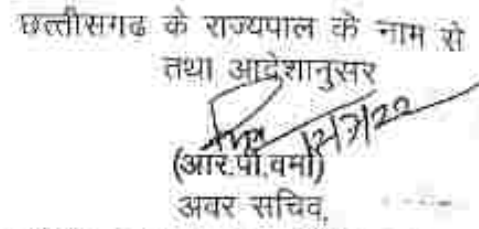 छत्तीसगढ के राज्यपाल के नाम से
तथा आदेशानुसर
12/7/22
(आर.पी.वर्मा)
अवर सचिव,